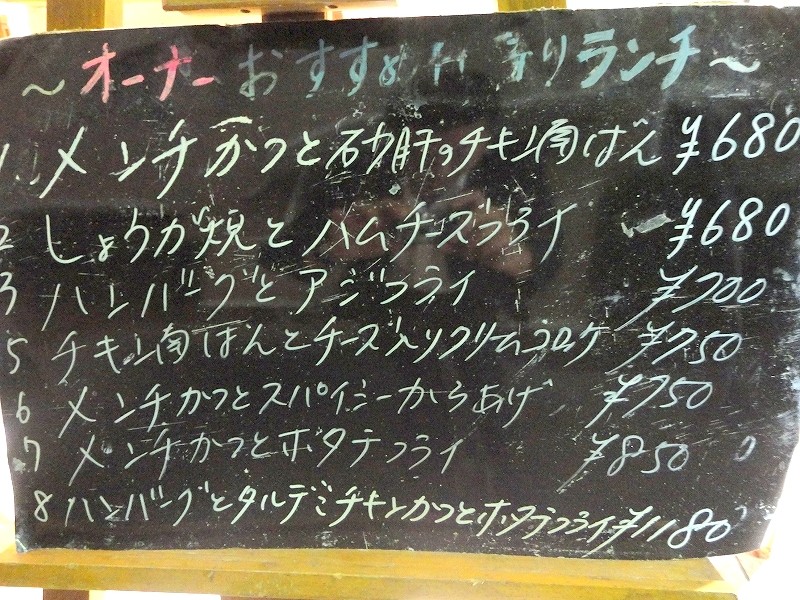 ～オーナーおすすめ日替りランチ～
1 メンチかつと砂肝のチキン南ばん ¥680
2 しょうが焼とハムチーズフライ ¥680
3 ハンバーグとアジフライ ¥700
5 チキン南ばんとチーズ入りクリームコロケ ¥750
6 メンチかつとスパイシーからあげ ¥750
7 メンチかつとホタテフライ ¥850
8 ハンバーグとタルデミチキンかつとホタテフライ ¥1180